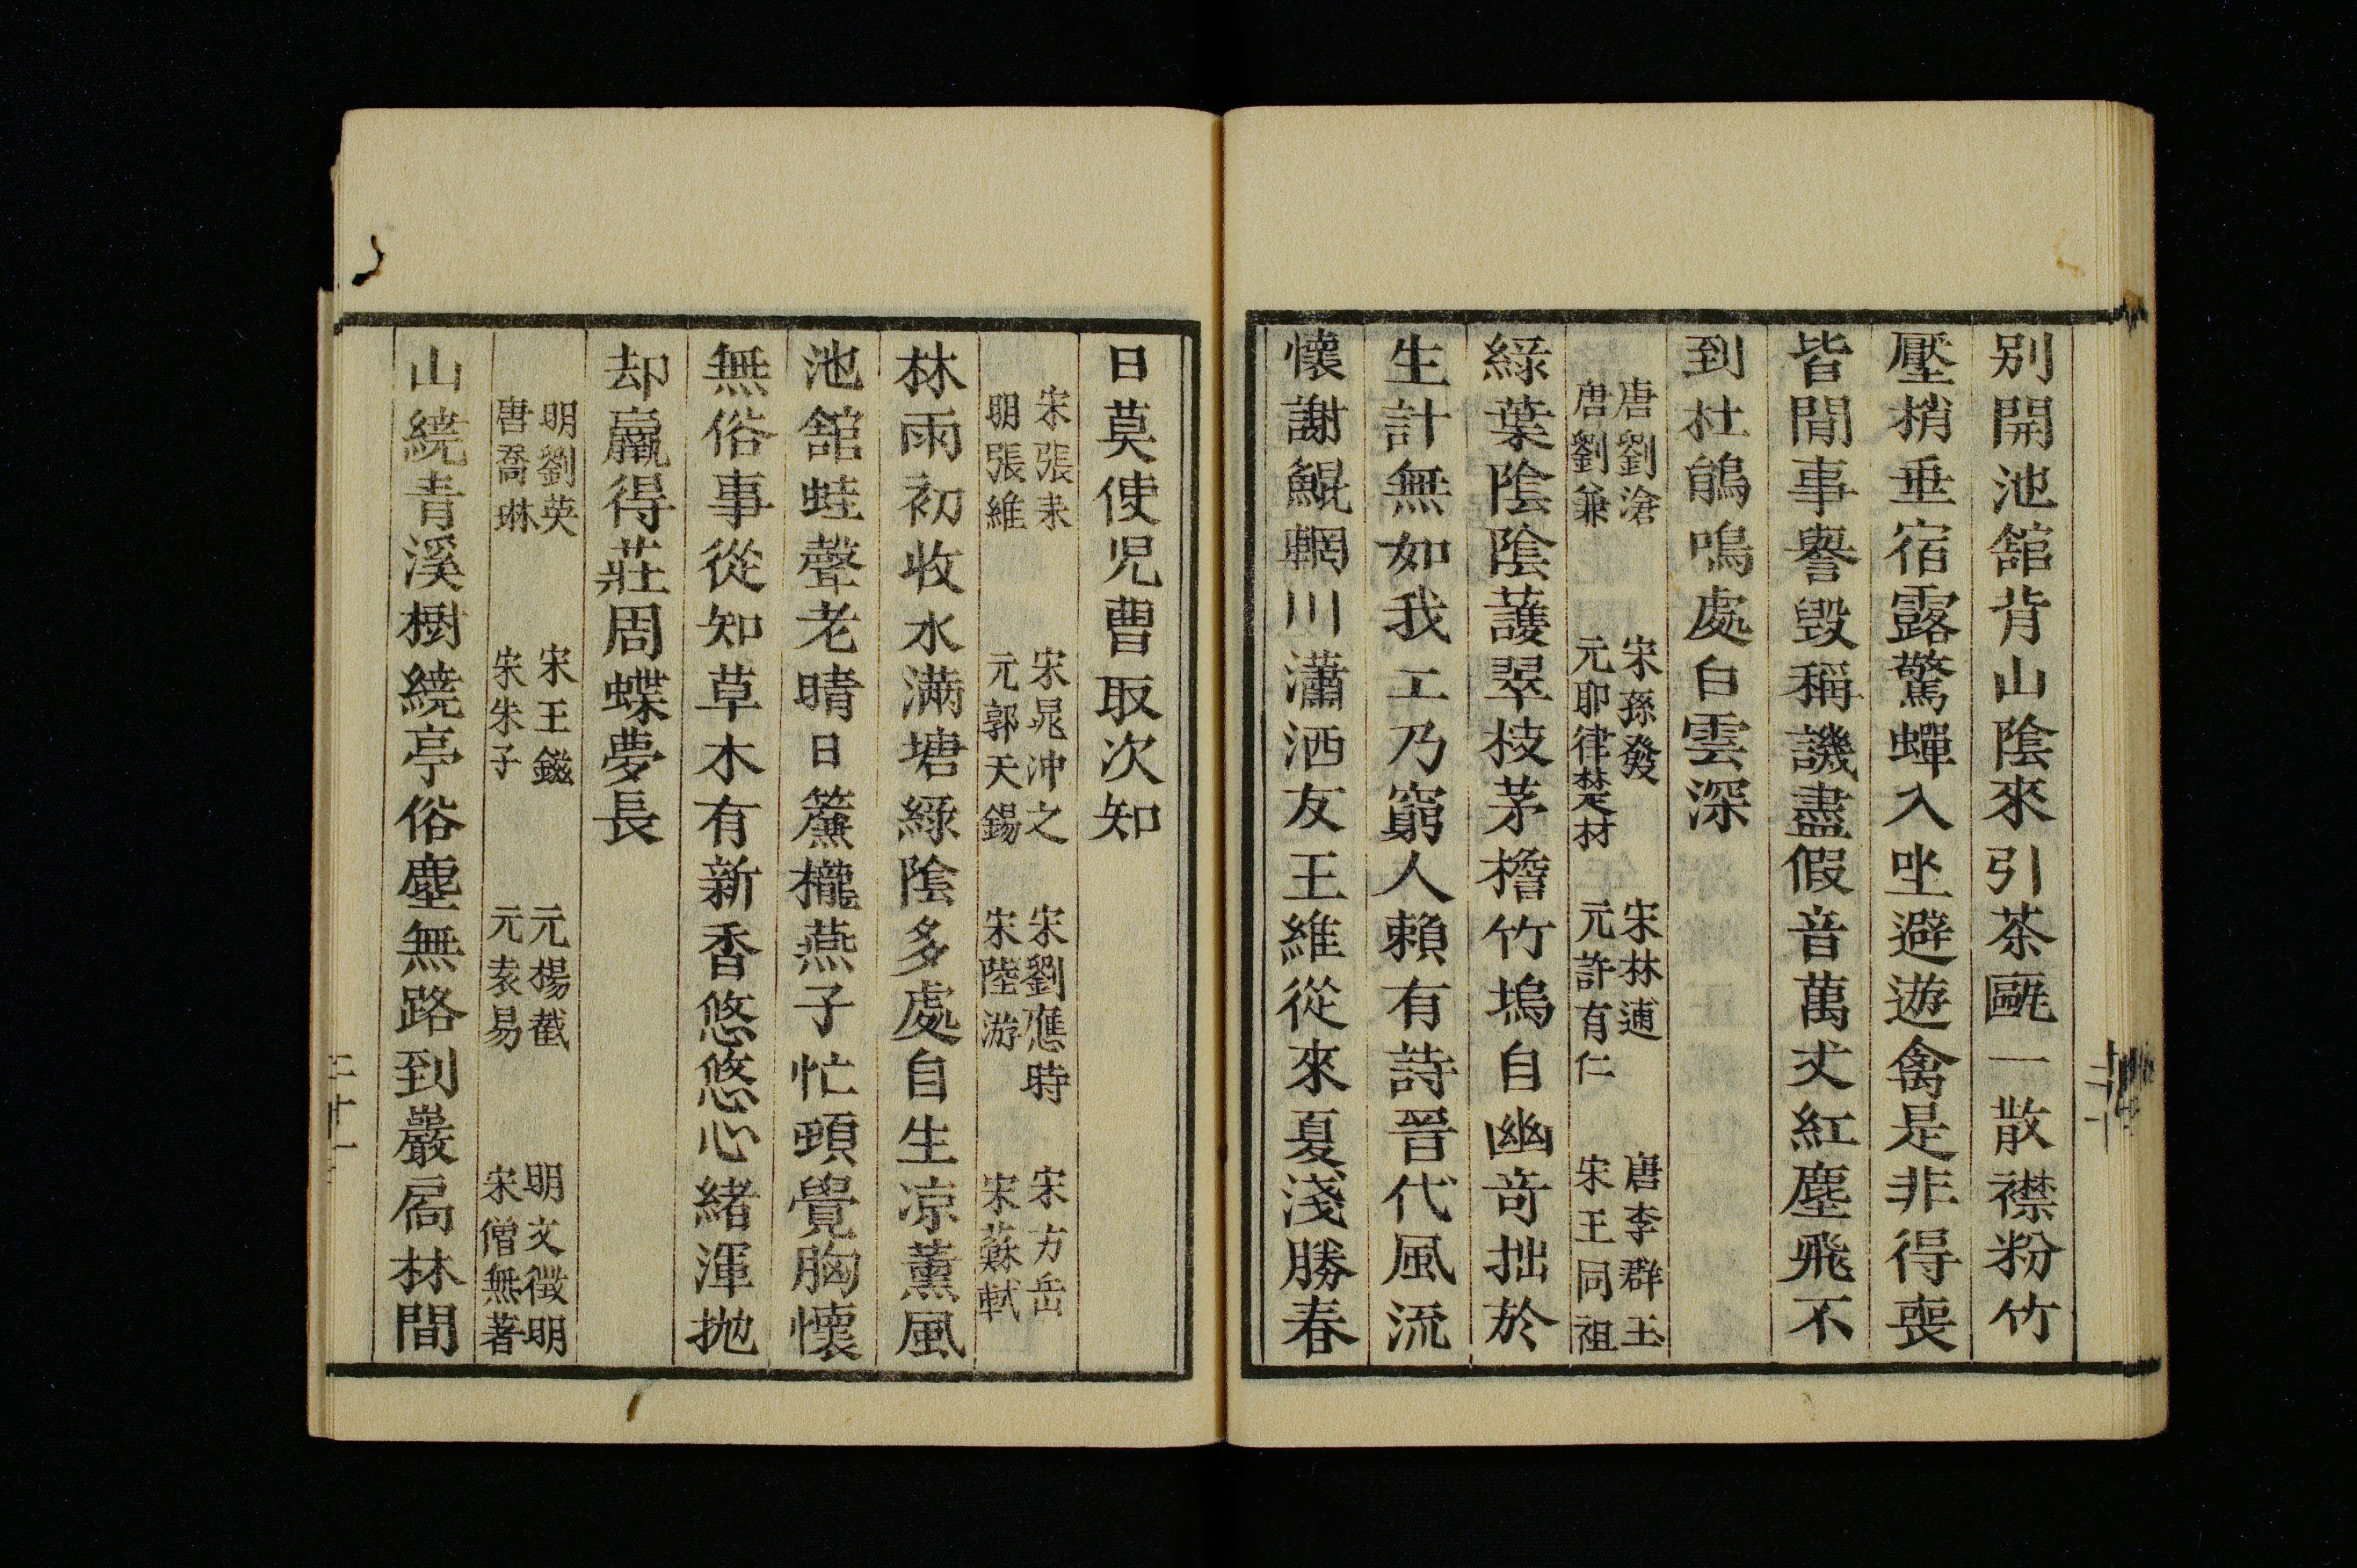 別開池舘背山陰來引茶甌一散襟粉竹
壓梢垂宿露驚蟬入坐避遊禽是非得喪
皆閒事譽毀稱譏盡假音萬丈紅塵飛不
到杜鵑鳴處白雲深
唐劉滄　宋孫發　宋林逋　唐李群玉
唐劉兼　元耶律楚材　元許有仁　宋王同祖
綠葉陰陰護翠枝茅檐竹塢自幽竒拙於
生計無如我工乃窮人賴有詩晉代風流
懷謝鯤輞川瀟洒友王維從來夏淺勝春
日莫使児曹取次知
宋張耒　宋晁沖之　宋劉應時　宋方岳
明張維　元郭天錫　宋陸游　宋蘇軾
林雨初收水滿塘綠陰多處自生凉薰風
池舘蛙聲老晴日簾櫳燕子忙頓覺胸懷
無俗事從知草木有新香悠悠心緒渾抛
却贏得莊周蝶夢長
明劉英　宋王鎡　元楊載　明文徵明
唐喬琳　宋朱子　元袁易　宋僧無著
山繞青溪樹繞亭俗塵無路到巖扃林間